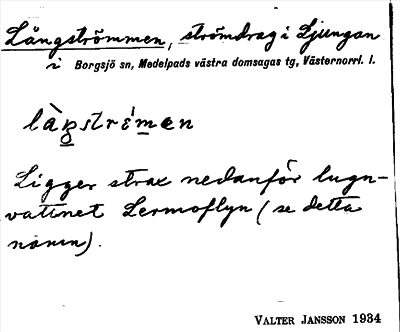 Långströmmen, strömdrag i Ljungan
i Borgsjö sn, Medelpads västra domsagas tg, Västernorrl. l.
làŋstrɛ́men
Ligger strax nedanför lugn-
vattnet Lermoflyn (se detta
namn).
VALTER JANSSON 1934